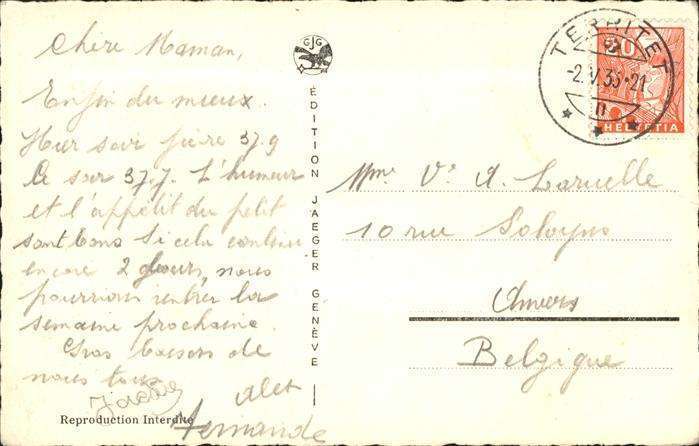 Chère Maman,
Enfin du mieux.
Hier soir fièvre 37.9
Ce soir 37.7. L'humeur
et l'appétit du petit
sont bons Si cela continue
encore 2 jours, nous
pourrions rentrer la
semaine prochaine.
Gros baisers de
nous tous
Alex
Fernande
Reproduction Interdite
GJG
ÉDITION JAEGER GENÈVE
TERRITET
-2.V.35-21
20
HELVETIA
Mme Ve A. Laruelle
10 rue Solvyns
Anvers
Belgique